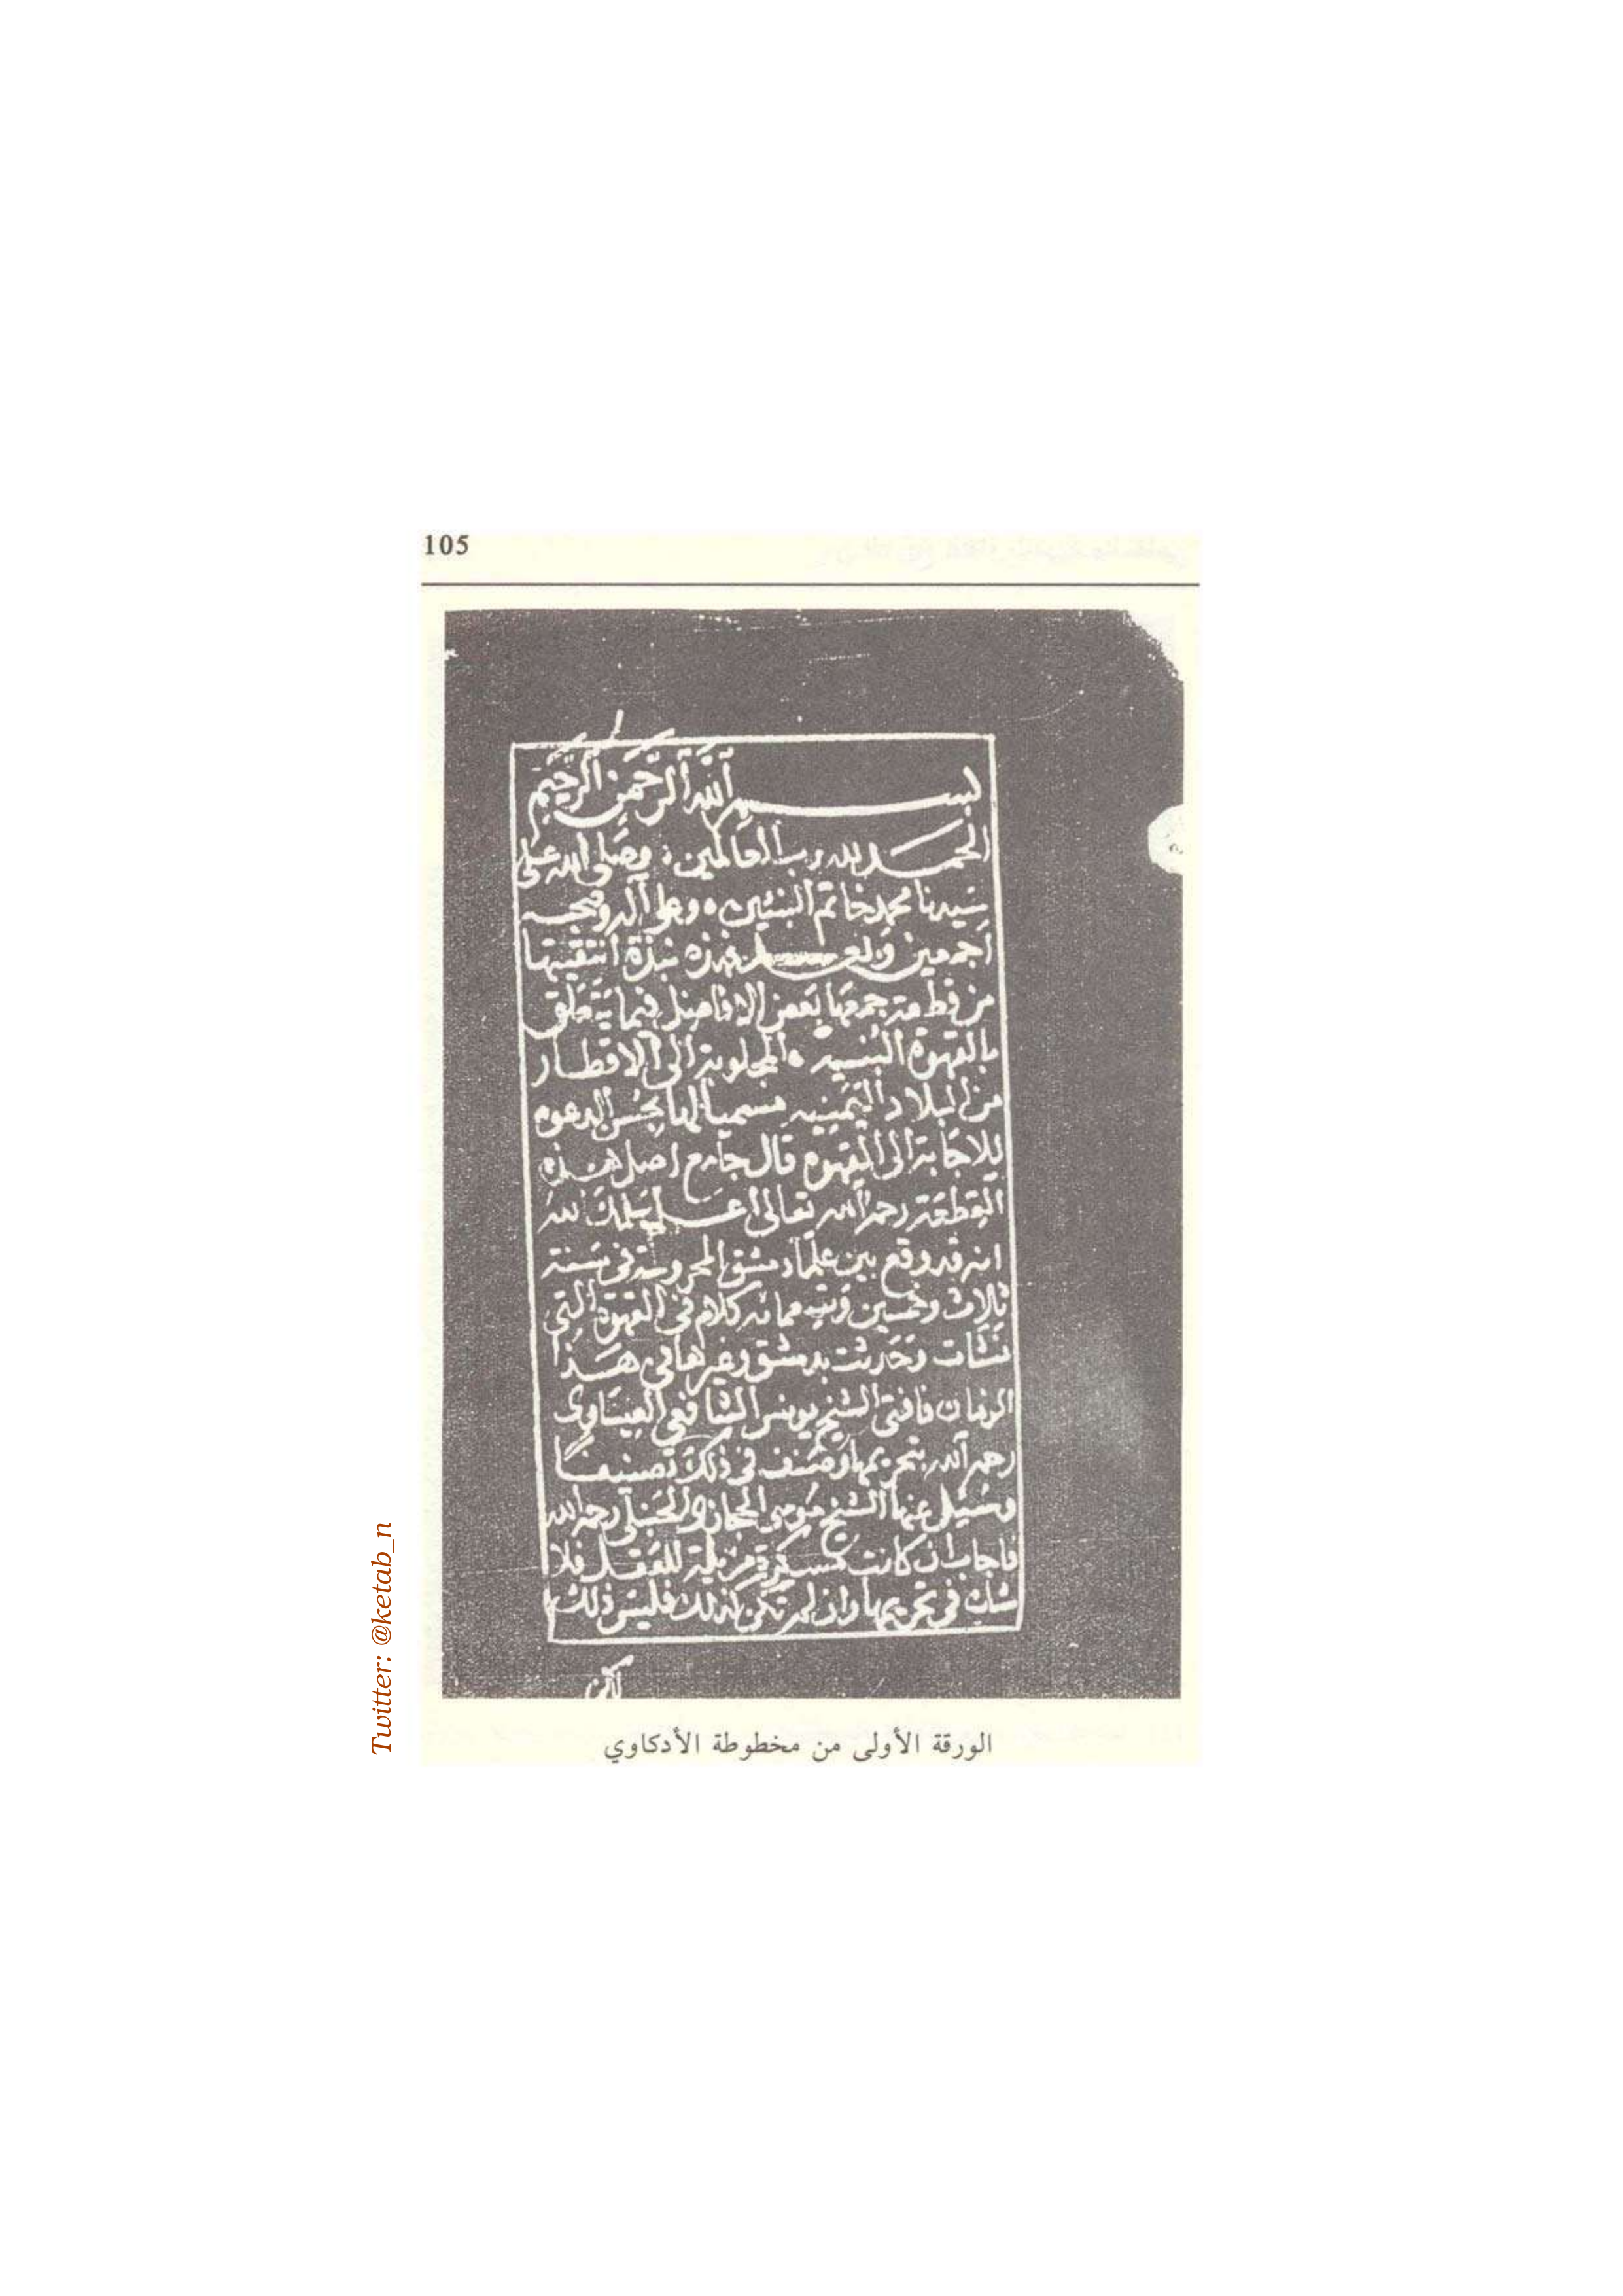 105
بسم الله الرحمن الرحيم
الحمد لله رب العالمين وصلى الله على
سيدنا محمد خاتم النبيين وعلى آله وصحبه
اجمعين وبعد فهذه نبذة انتقيتها
من قطعة جمعها بعض الافاضل فيما يتعلق
بالقهوة البنيه المجلوبة الى الاقطار
من البلاد اليمينيه مسميا لها بحسن الدعوه
للاجابة الى القهوه قال جامع اصل هذه
القطعة رحمه الله تعالى اعلم سلمك الله
انه قد وقع بين علماء دمشق المحروسة في سنة
ثلاث وخمسين وتسعمائه كلام في القهوة التي
نشات وحدثت بدمشق وغيرها في هذا
الزمان فافتى الشيخ يونس الشافعي العيساوى
رحمه الله بتحريمها وصنف في ذلك تصنيفا
وسئل عنها الشيخ موسى الحجازي الحنبلي رحمه الله
فاجاب ان كانت مسكرة مزيلة للعقل فلا
شك في تحريمها وان لم تكن كذلك فليس ذلك
لاكن
الورقة الأولى من مخطوطة الأدكاوي
Twitter: @ketab_n